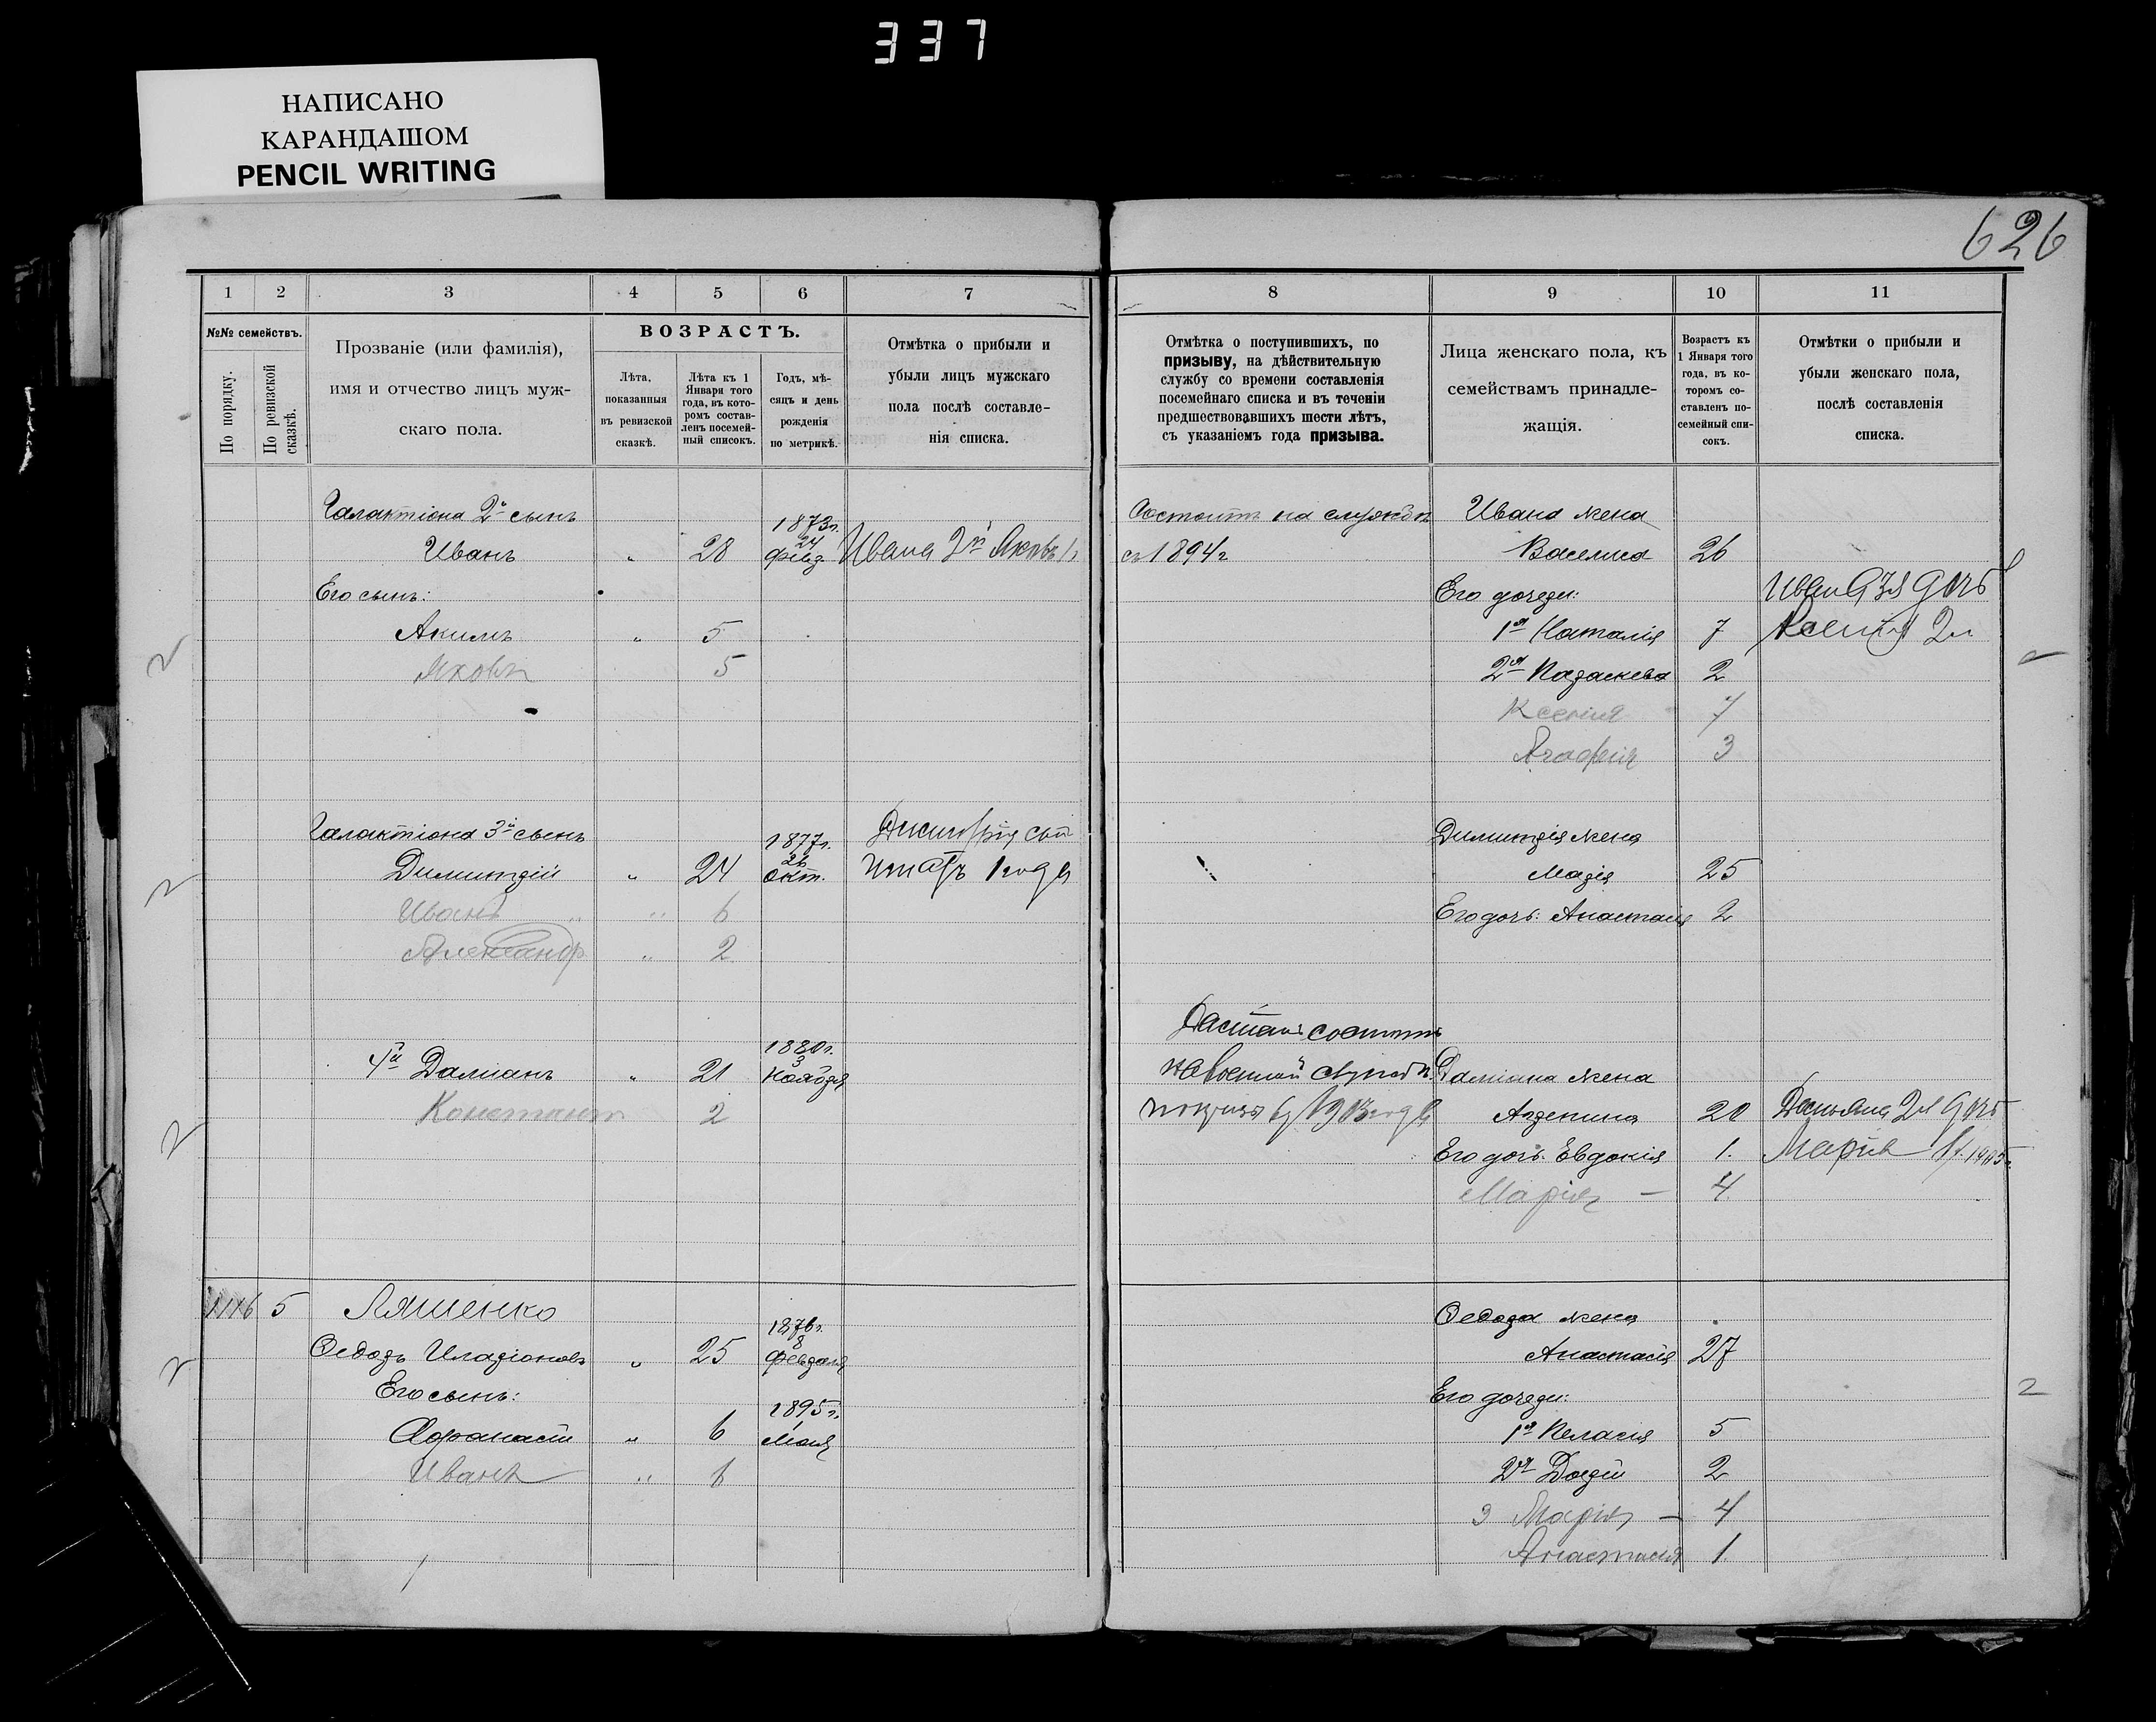 337
НАПИСАНО
КАРАНДАШОМ
PENCIL WRITING
626
1 2 3 4 5 6 7
№№ семействъ.
По порядку.
По ревизской сказкѣ.
Прозваніе (или фамилія),
имя и отчество лицъ муж-
скаго пола.
ВОЗРАСТЪ.
Лѣта,
показанныя
въ ревизской
сказкѣ.
Лѣта къ 1
Января того
года, въ кото-
ромъ состав-
ленъ посемей-
ный списокъ.
Годъ, мѣ-
сяцъ и день
рожденія
по метрикѣ.
Отмѣтка о прибыли и
убыли лицъ мужскаго
пола послѣ составле-
нія списка.
Галактіона 2й сынъ
1873г.
24
Иванъ " 28 Февр. Ивана 2й Яковъ
Его сынъ:
Акимъ " 5
Яковъ 5
Галактіона 3й сынъ
1877г. Димитрія сын
26
Димитрій " 24 Окт. 1 года
Иванъ " " 6
Александр " 2
1880г.
3
4й Даміанъ " 21 Ноября
Констант 2
1116 5 Ляшенко
1876г.
8
Ѳедоръ Иларіоновъ " 25 Февраля
Его сынъ:
1895г.
1
Афанасій " 6 Мая
Иванъ " 6
8 9 10 11
Отмѣтка о поступившихъ, по
призыву, на дѣйствительную
службу со времени составленія
посемейнаго списка и въ теченіи
предшествовавшихъ шести лѣтъ,
съ указаніемъ года призыва.
Лица женскаго пола, къ
семействамъ принадле-
жащія.
Возрастъ къ
1 Января того
года, въ ко-
торомъ со-
ставленъ по-
семейный спи-
сокъ.
Отмѣтки о прибыли и
убыли женскаго пола,
послѣ составленія
списка.
Состоитъ на службѣ Ивана жена
съ 1894г Василиса 26
Его дочери: Ивана 3я дочь
1я Наталія 7 Ксенія 2л
2я Параскева 2
Ксенія 7
Агафія 3
Димитрія жена
Марія 25
Его дочь: Анастасія 2
состоитъ
на военной службѣ Даміана жена
1903 года Агрепина 20 Демьяна 2я дочь
Его дочь: Евдокія 1. Марія 1905г.
Марія — 4
Ѳедора жена
Анастасія 27
Его дочери: 2
1я Пелагія 5
2я Дарія 2
3 Марія — 4
Анастасія 1